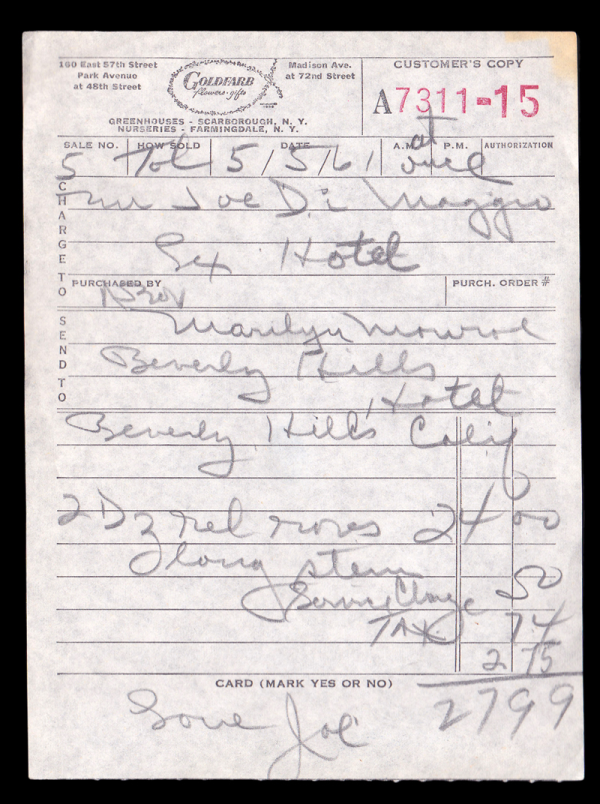 160 East 57th Street
Park Avenue
at 48th Street
GOLDFARB
flowers-gifts
Madison Ave.
at 72nd Street
GREENHOUSES - SCARBOROUGH, N. Y.
NURSERIES - FARMINGDALE, N. Y.
CUSTOMER'S COPY
A7311-15
SALE NO. HOW SOLD DATE A.M. P.M. AUTHORIZATION
5 Tel 5/5/61 at once
CHARGE TO
Mr Joe Di Maggio
Lex Hotel
PURCHASED BY PURCH. ORDER #
SEND TO
Marilyn Monroe
Beverly Hills
Hotel
Beverly Hills Calif
2 Dz red roses 24 00
long stem
Service Charge 50
TAX 74
2 75
CARD (MARK YES OR NO)
27 99
Love Joe